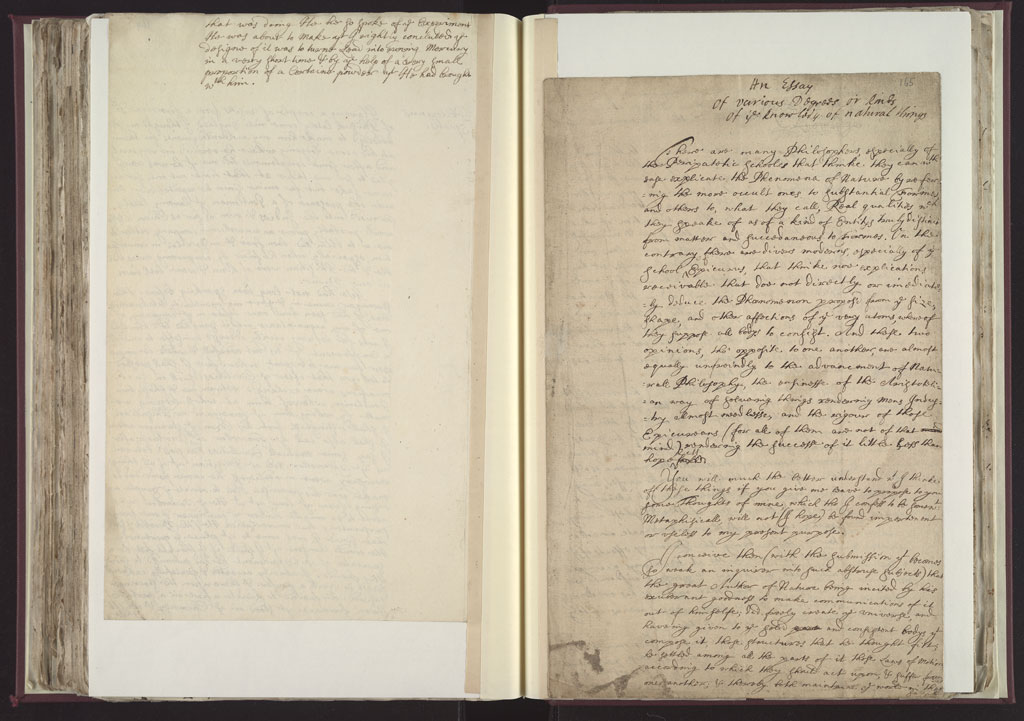 that was doing He he so spoke of yͤ Experiment
He was about to make yt I rightly concluded yͤ
designe of it was to turne Lead into running Mercury
in a very short time & by yͤ help of a very small
proportion of a Certaine powder yt He had brought
wth him.
165
An Essay
Of various Degrees or kinds
of yͤ knowledg of natural things
There are many Philosophers, especially of
the Peripatetic Schooles that thinke they can wth
ease explicate the Phenomena of Nature by refer
-ring the more occult ones to substantial Formes
and others to, what they call, Real qualities wch
they speake of as of a kind of Entitys truly distinct
from matter and succedaneous to Formes. On the
contrary there are divers moderns, especially of yͤ
School Epicurus, that thinke noe explications
receivable that doe not directly or imediate
-ly deduce the Phænomenon propos'd from yͤ size,
shape, and other affections of yͤ very atoms whereof
they suppose all bodys to consist. And these two
opinions, tho opposite to one another, are almost
equally unfriendly to the advancement of Natu
-rall Philosophy, the easinesse of the Aristoteli
-an way of solveing things rendering mens Indus
-try almost needlesse, and the rigour of those
Epicureans (for all of them are not of that
mind) rendering the successe of it little lesse then
hopelesse
You will much the better understand wt I thinke
of these things if you give me leave to propose to you
some Thoughts of mine which tho I confess to be somewt
Metaphysicall, will not (I hope) be fund impertinent
or useless to my present purpose.
I conceive then (with the submission yt becomes
so weak an inquirer into such abstruse subjects) that
the great Author of Nature being incited by his
exuberant goodness to make communications of it
out of himselfe, did freely create yͤ universe, and
haveing given to yͤ solid and consistent bodys yt
compose it those structures that he thought fitt,
he setled among all the parts of it those Laws of Motion
according to which they should act upon, & suffer from
one another, & thereby both maintain yͤ world in that